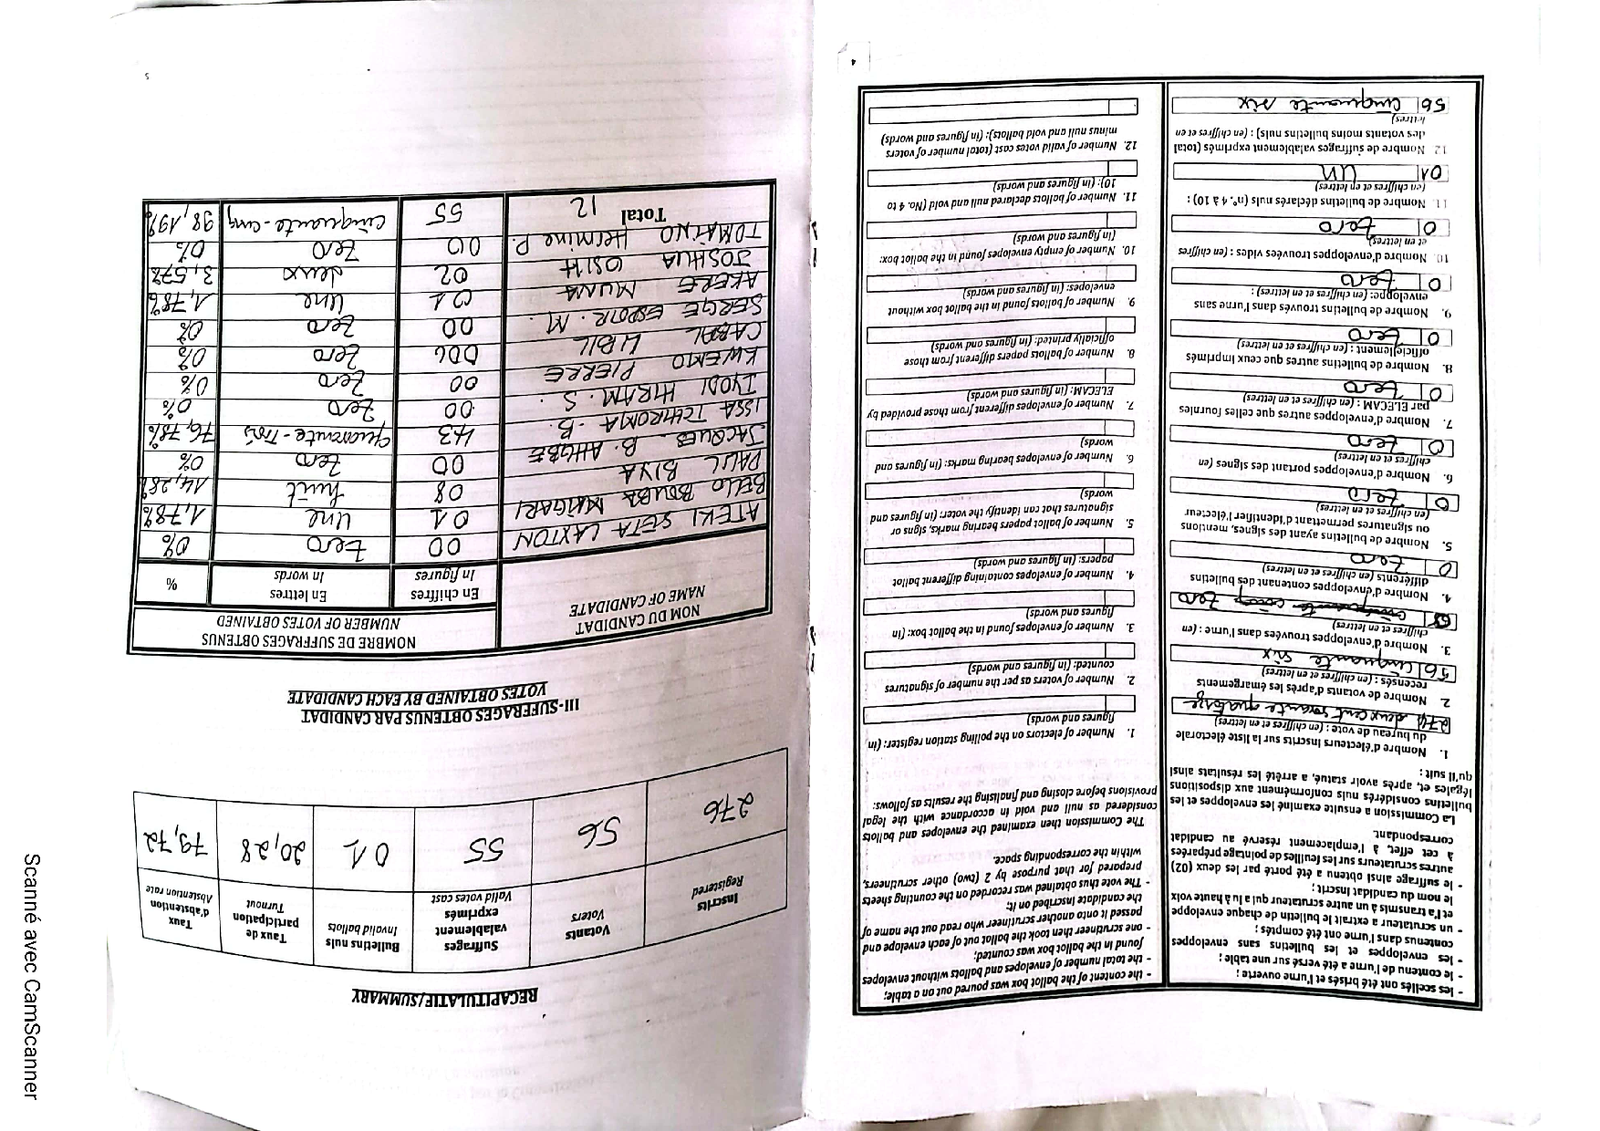 - les scellés ont été brisés et l'urne ouverte ;
- le contenu de l'urne a été versé sur une table ;
- les enveloppes et les bulletins sans enveloppes
contenus dans l'urne ont été comptés ;
- un scrutateur a extrait le bulletin de chaque enveloppe
et l'a transmis à un autre scrutateur qui a lu à haute voix
le nom du candidat inscrit ;
- le suffrage ainsi obtenu a été porté par les deux (02)
autres scrutateurs sur les feuilles de pointage préparées
à cet effet, à l'emplacement réservé au candidat
correspondant.
La Commission a ensuite examiné les enveloppes et les
bulletins considérés nuls conformément aux dispositions
légales et, après avoir statué, a arrêté les résultats ainsi
qu'il suit :
1. Nombre d'électeurs inscrits sur la liste électorale
du bureau de vote : (en chiffres et en lettres)
deux cent
2. Nombre de votants d'après les émargements
recensés : (en chiffres et en lettres)
56 cinquante six
3. Nombre d'enveloppes trouvées dans l'urne : (en
chiffres et en lettres)
zero
4. Nombre d'enveloppes contenant des bulletins
différents (en chiffres et en lettres)
0 zero
5. Nombre de bulletins ayant des signes, mentions
ou signatures permettant d'identifier l'électeur
(en chiffres et en lettres)
0 zero
6. Nombre d'enveloppes portant des signes (en
chiffres et en lettres)
0 zero
7. Nombre d'enveloppes autres que celles fournies
par ELECAM : (en chiffres et en lettres)
0 zero
8. Nombre de bulletins autres que ceux imprimés
officiellement : (en chiffres et en lettres)
0 zero
9. Nombre de bulletins trouvés dans l'urne sans
enveloppe: (en chiffres et en lettres) :
0 zero
10. Nombre d'enveloppes trouvées vides : (en chiffres
et en lettres)
0 zero
11. Nombre de bulletins déclarés nuls (n°. 4 à 10) :
(en chiffres et en lettres)
01 un
12. Nombre de suffrages valablement exprimés (total
des votants moins bulletins nuls) : (en chiffres et en
lettres)
56 cinquante six
- the content of the ballot box was poured out on a table;
- the total number of envelopes and ballots without envelopes
found in the ballot box was counted;
- one scrutineer then took the ballot out of each envelope and
passed it onto another scrutineer who read out the name of
the candidate inscribed on it;
- The vote thus obtained was recorded on the counting sheets
prepared for that purpose by 2 (two) other scrutineers,
within the corresponding space.
The Commission then examined the envelopes and ballots
considered as null and void in accordance with the legal
provisions before closing and finalising the results as follows:
1. Number of electors on the polling station register: (in
figures and words)
2. Number of voters as per the number of signatures
counted: (in figures and words)
3. Number of envelopes found in the ballot box: (in
figures and words)
4. Number of envelopes containing different ballot
papers: (in figures and words)
5. Number of ballot papers bearing marks, signs or
signatures that can identify the voter: (in figures and
words)
6. Number of envelopes bearing marks: (in figures and
words)
7. Number of envelopes different from those provided by
ELECAM: (in figures and words)
8. Number of ballots papers different from those
officially printed: (in figures and words)
9. Number of ballots found in the ballot box without
envelopes: (in figures and words)
10. Number of empty envelopes found in the ballot box:
(in figures and words)
11. Number of ballots declared null and void (No. 4 to
10): (in figures and words)
12. Number of valid votes cast (total number of voters
minus null and void ballots): (in figures and words)
4
RECAPITULATIF/SUMMARY
Inscrits Registered
Votants Voters
Suffrages valablement exprimés Valid votes cast
Bulletins nuls Invalid ballots
Taux de participation Turnout
Taux d'abstention Abstention rate
276 56 55 01 20,28 79,72
III-SUFFRAGES OBTENUS PAR CANDIDAT
VOTES OBTAINED BY EACH CANDIDATE
NOM DU CANDIDAT
NAME OF CANDIDATE
NOMBRE DE SUFFRAGES OBTENUS
NUMBER OF VOTES OBTAINED
En chiffres In figures
En lettres In words
%
ATEKI SETA LAXTON 00 zero 0%
BELLO BOUBA MAIGARI 01 une 1,78%
PAUL BIYA 08 huit 14,28%
JACQUES B. 00 zero 0%
ISSA TCHIROMA .B. 43 quarante-trois 76,78%
IYODI HIRAM .S. 00 zero 0%
KWEMO PIERRE 00 zero 0%
CABRAL LIBII 00 zero 0%
SERGE ESPOIR .M. 00 zero 0%
AKERE MUNA 01 une 1,78%
JOSHUA OSIH 02 deux 3,57%
TOMAÏNO Hermine P. 00 zero 0%
Total 12 55 cinquante-cinq 98,19%
5
Scanné avec CamScanner